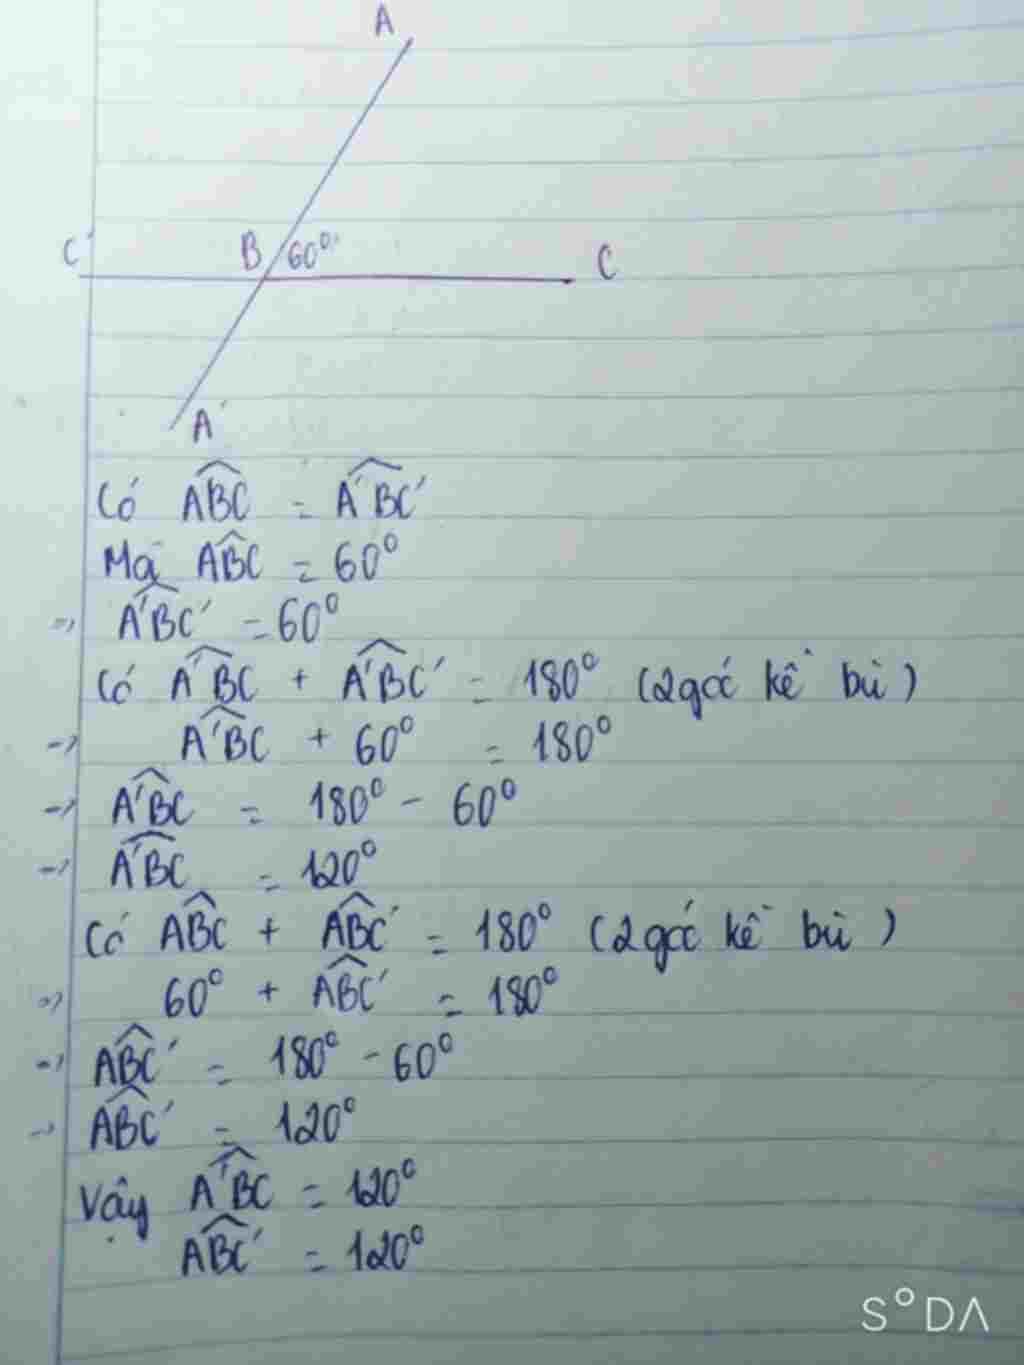 A
C' B 60° C
A'
Có ABC = A'BC'
Mà ABC = 60°
=> A'BC' = 60°
Có A'BC + A'BC' = 180° (2 góc kề bù)
=> A'BC + 60° = 180°
=> A'BC = 180° - 60°
=> A'BC = 120°
Có ABC + ABC' = 180° (2 góc kề bù)
=> 60° + ABC' = 180°
=> ABC' = 180° - 60°
=> ABC' = 120°
Vậy A'BC = 120°
ABC' = 120°
SODA